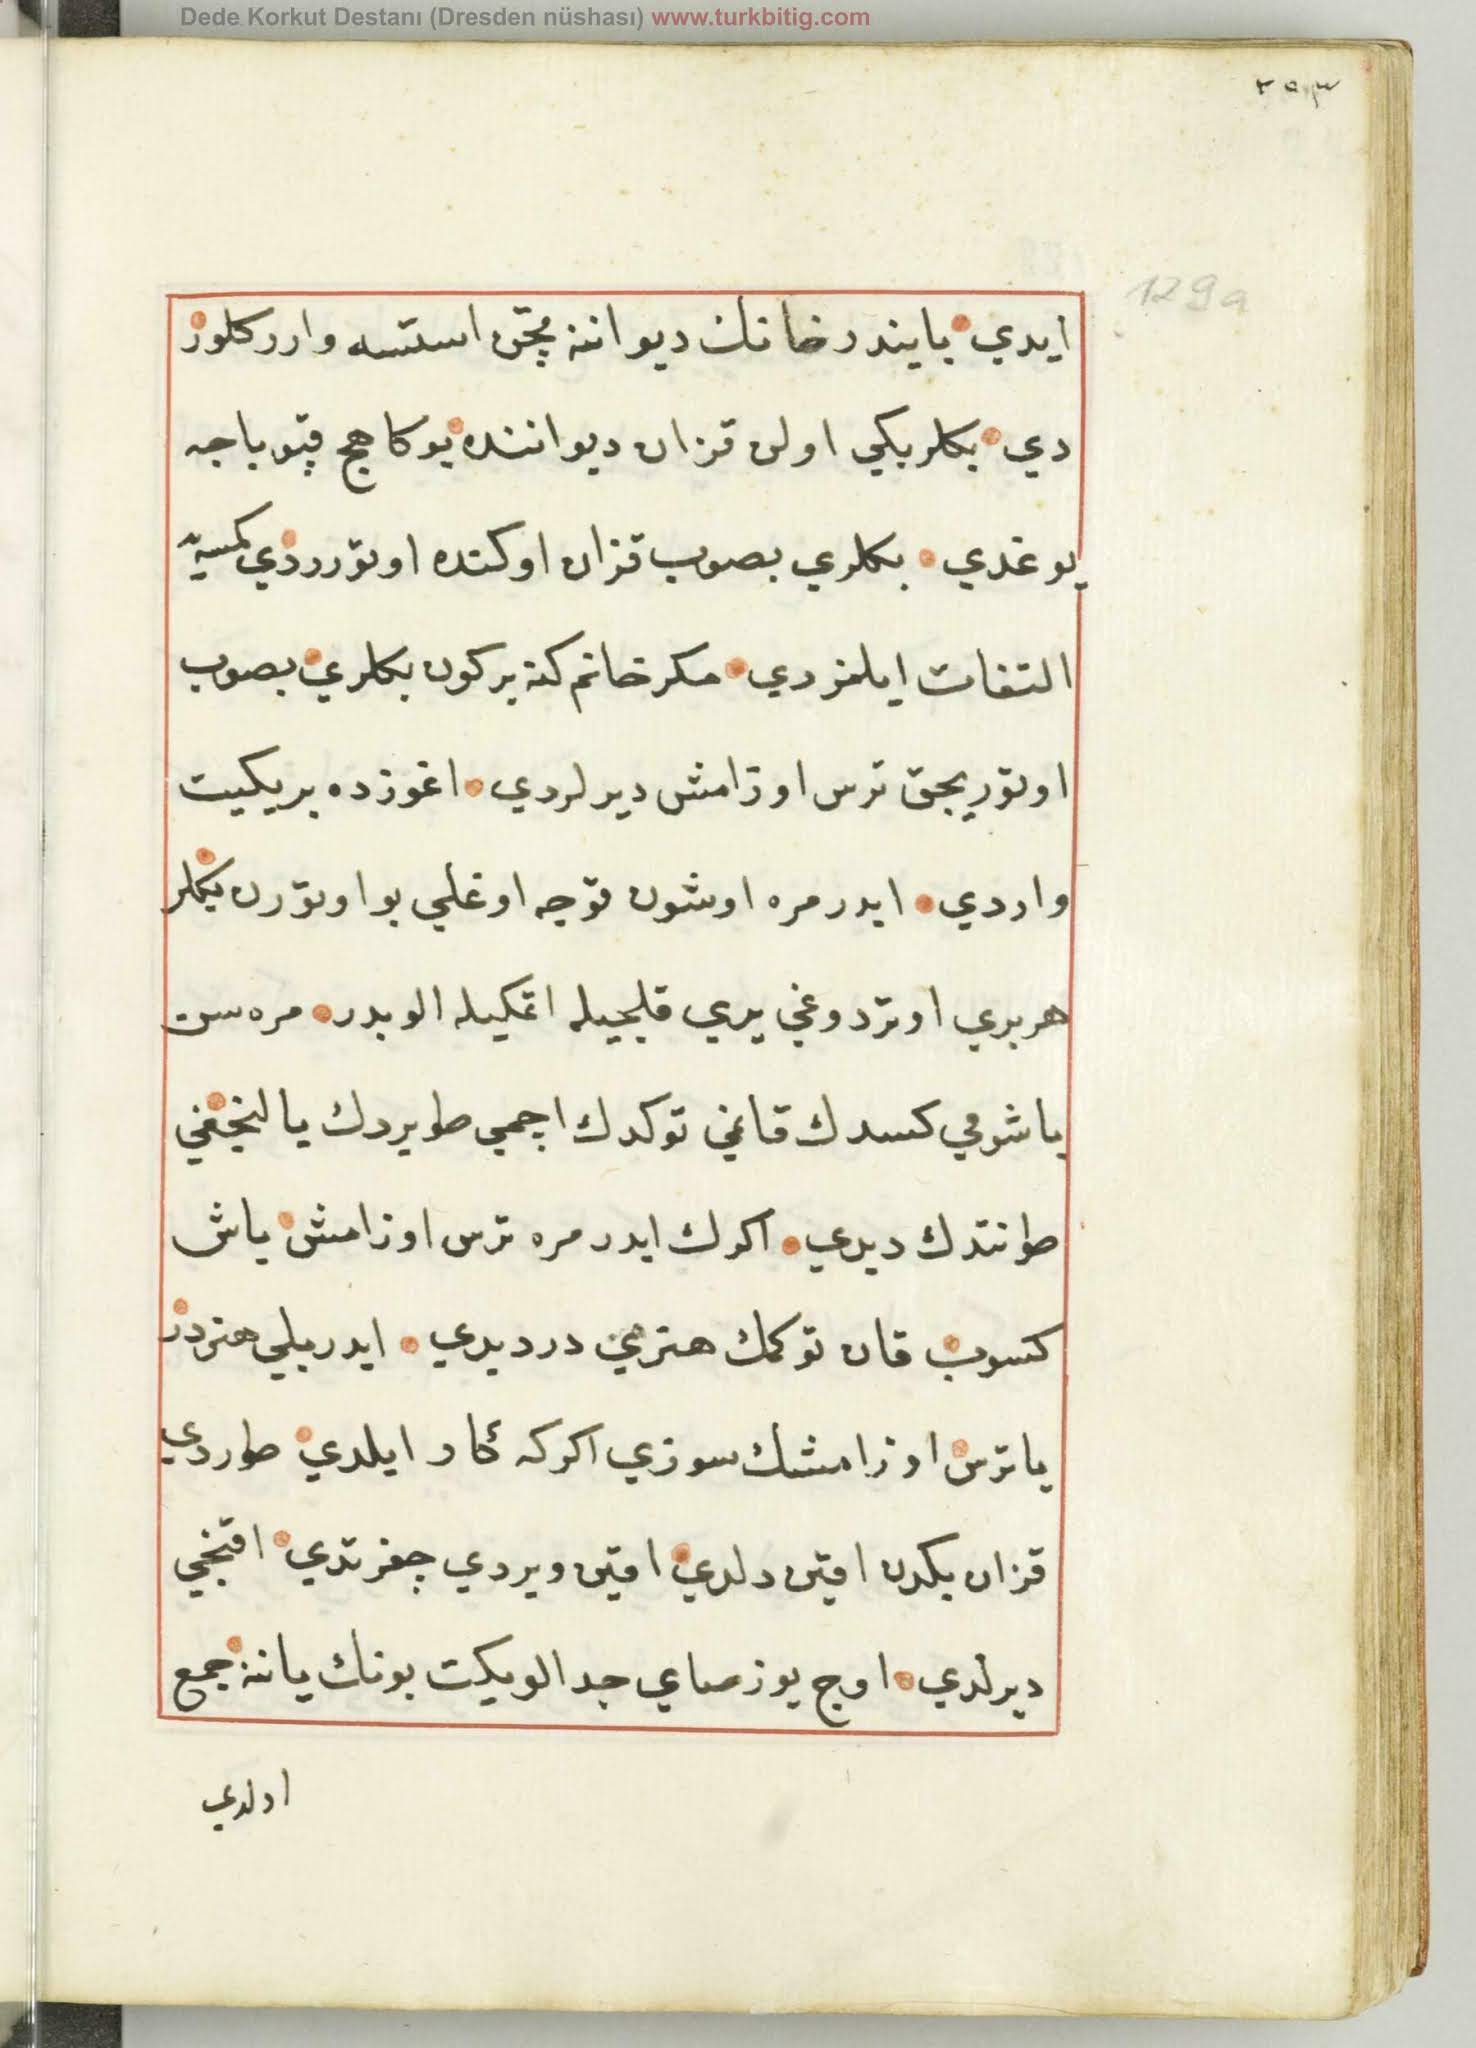 Dede Korkut Destanı (Dresden nüshası) www.turkbitig.com
٢٥٣
129a
ايدي بايندر خانك ديواننه قچن استسه وارر كلور
دي بكلر بكي اولن قزان ديواننده بوكا هيچ قپو باجه
يوغدي بكلري بصوب قزان اوكنده اوتورردي كمسيه
التفات ايلمزدي مكر خانم كنه بر كون بكلري بصوب
اوتوريجق ترس اوزامش ديرلردي اغوزده بر يكيت
واردي ايدر مره اوشون قوجه اوغلي بو اوتورن بكلر
هر بري اوتردوغي يري قلجيله اتمكيله الوبدر مره سن
باشومي كسدك قانمي توكدك اچمي طويردك يالنجغمي
طونتدك ديدي اكرك ايدر مره ترس اوزامش باش
كسوب قان توكمك هنرمي در ديدي ايدر بلي هنردر
يا ترس اوزامشك سوزي اكركه كار ايلدي طوردي
قزان بكدن اقين دلدي اقين ويردي چغرتدي اقنجي
ديرلدي اوج يوز صاي جدالو يكت بونك ياننه جمع
اولدي